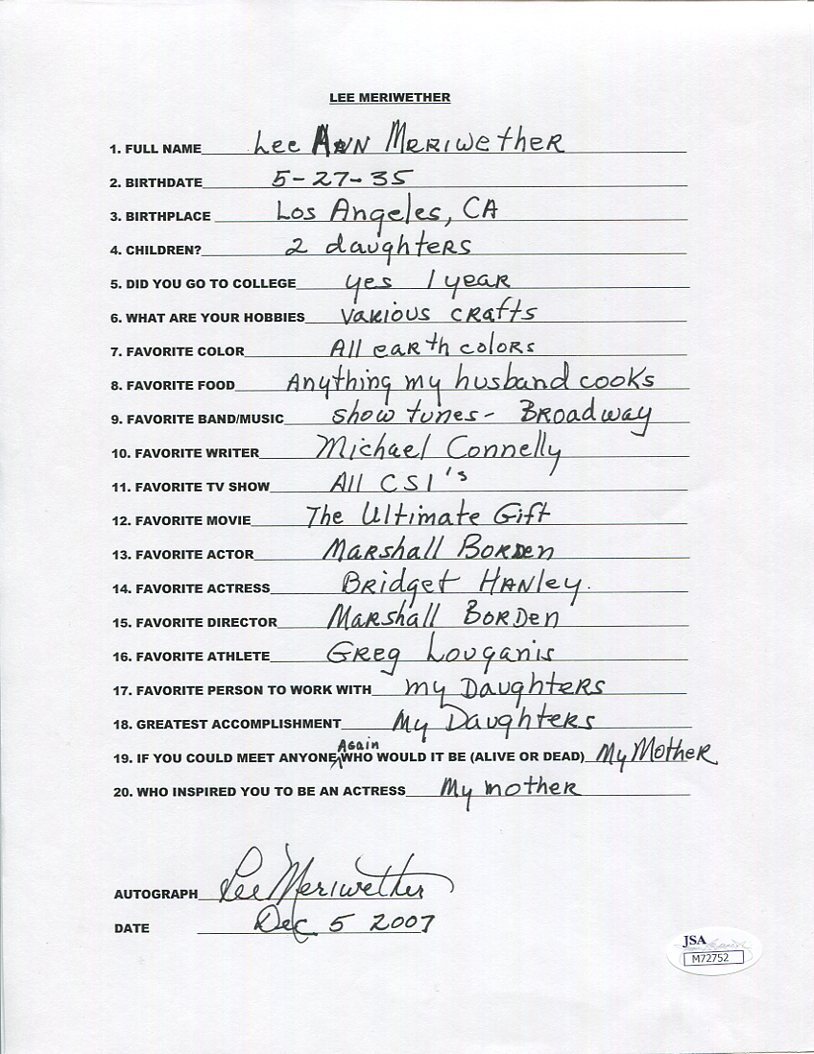 LEE MERIWETHER
1. FULL NAME Lee Ann Meriwether
2. BIRTHDATE 5-27-35
3. BIRTHPLACE Los Angeles, CA
4. CHILDREN? 2 daughters
5. DID YOU GO TO COLLEGE yes 1 year
6. WHAT ARE YOUR HOBBIES various crafts
7. FAVORITE COLOR All earth colors
8. FAVORITE FOOD Anything my husband cooks
9. FAVORITE BAND/MUSIC show tunes - Broadway
10. FAVORITE WRITER Michael Connelly
11. FAVORITE TV SHOW All CSI's
12. FAVORITE MOVIE The Ultimate Gift
13. FAVORITE ACTOR Marshall Borden
14. FAVORITE ACTRESS Bridget Hanley.
15. FAVORITE DIRECTOR Marshall Borden
16. FAVORITE ATHLETE Greg Louganis
17. FAVORITE PERSON TO WORK WITH my Daughters
18. GREATEST ACCOMPLISHMENT My Daughters
19. IF YOU COULD MEET ANYONE Again WHO WOULD IT BE (ALIVE OR DEAD) My Mother
20. WHO INSPIRED YOU TO BE AN ACTRESS My mother
AUTOGRAPH Lee Meriwether
DATE Dec 5 2007
JSA
M72752